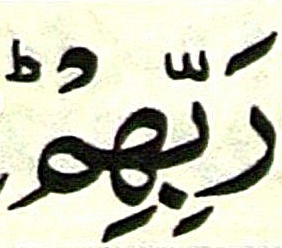 رَبِّهِمْ ؕ